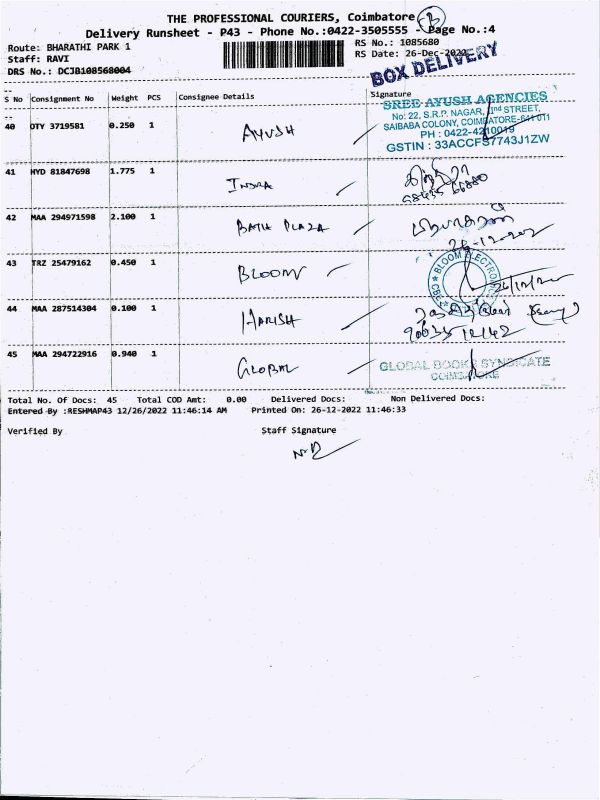 THE PROFESSIONAL COURIERS, Coimbatore
Delivery Runsheet - P43 - Phone No.:0422-3505555 - Page No.:4
Route: BHARATHI PARK 1
RS No.: 1085680
Staff: RAVI
RS Date: 26-Dec-2022
DRS No.: DCJB108568004
BOX DELIVERY
S No Consignment No Weight PCS Consignee Details Signature
40 OTY 3719581 0.250 1 AYUSH
SREE AYUSH AGENCIES
No: 22, S.R.P. NAGAR, IInd STREET,
SAIBABA COLONY, COIMBATORE-641 011
PH : 0422-4210019
GSTIN : 33ACCFS7743J1ZW
41 HYD 81847698 1.775 1 INDRA
42 MAA 294971598 2.100 1 BATH PLAZA
43 TRZ 25479162 0.450 1 BLOOM
BLOOM ELECTRO
CBE
44 MAA 287514304 0.100 1 HARISH
45 MAA 294722916 0.940 1 GLOBAL
GLOBAL BOOKS SYNDICATE
COIMBATORE
Total No. Of Docs: 45 Total COD Amt: 0.00 Delivered Docs: Non Delivered Docs:
Entered By :RESHMAP43 12/26/2022 11:46:14 AM Printed On: 26-12-2022 11:46:33
Verified By Staff Signature